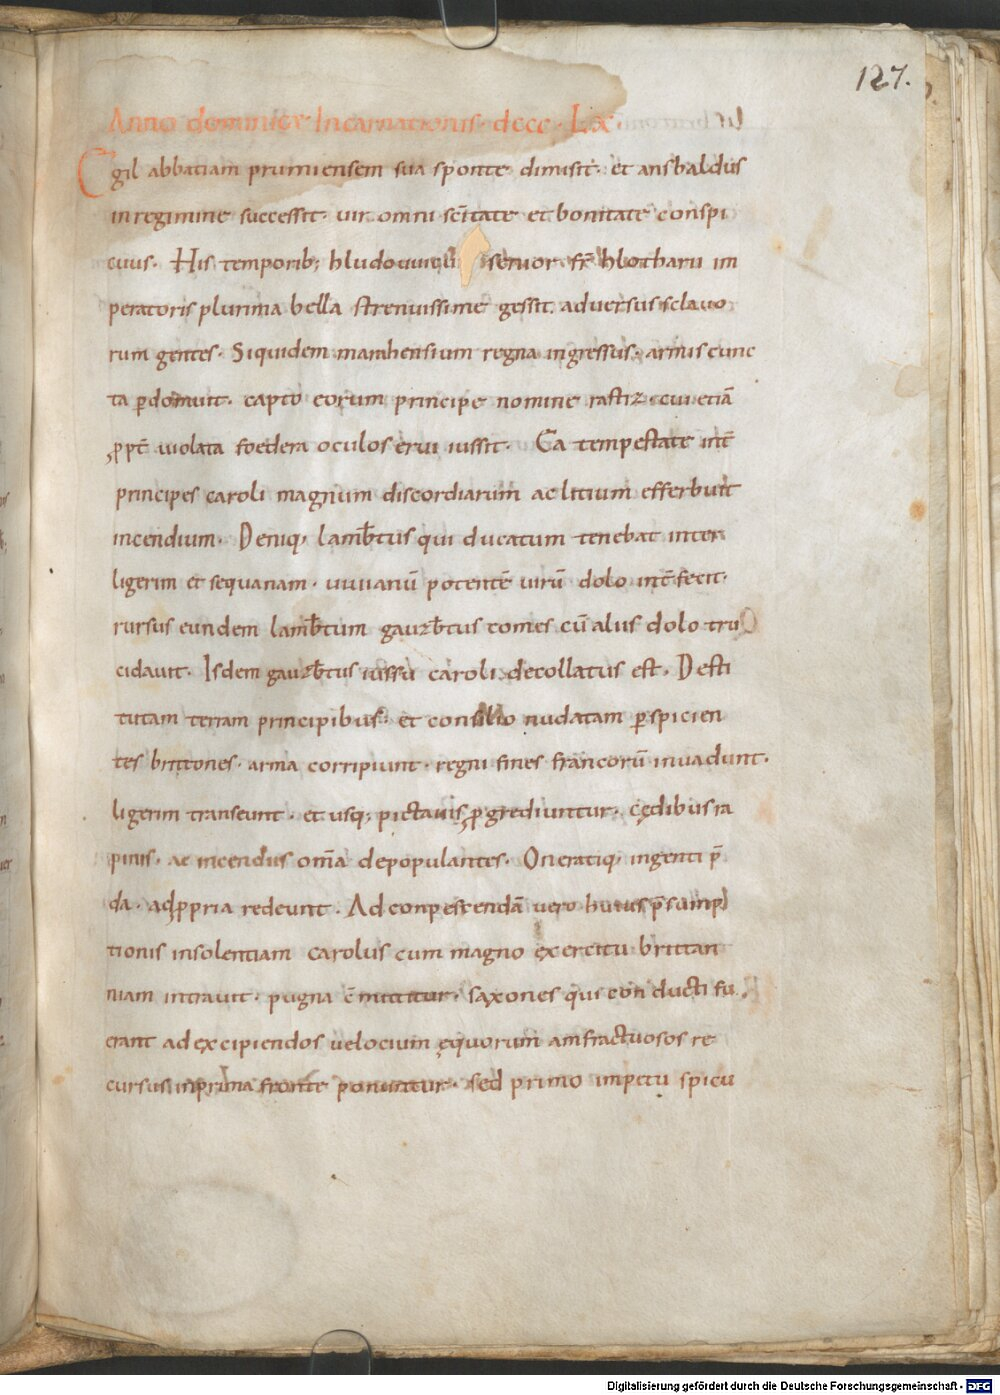 127.
Anno dominicę Incarnationis · dccc · Lx ·
Egil abbatiam prumiensem sua sponte dimisit · et ansbaldus
in regimine successit · vir omni scītate et bonitate conspi
cuus · His temporib; hludouuicus senior · fr̄ hlotharii im
peratoris plurima bella strenuissime gessit adversus sclavo
rum gentes · Siquidem marahensium regna ingressus · armis cunc
ta ꝑdomuit · capto eorum principe nomine rastiz · cui etiā
ꝓpt̄ violata foedera oculos erui iussit · Ea tempestate int̄
principes caroli magnum discordiarum ac litium efferbuit
incendium · Deniq; lamb̄tus qui ducatum tenebat inter
ligerim et sequanam · vivianū potentē virū dolo int̄fecit ·
rursus eundem lamb̄tum gauzb̄tus comes cū aliis dolo tru
cidavit · Isdem gauzb̄tus iussu caroli decollatus est · Desti
tutam terram principibus · et consilio nudatam ꝑspicien
tes brittones · arma corripiunt · regni fines francorū invadunt ·
ligerim transeunt · et usq; pictavis ꝓgrediuntur · cędibus ra
pinis · ac incendiis om̄a depopulantes · Oneratiq; ingenti p̄
da · ad ꝓpria redeunt · Ad conpescendā vero huius p̄sump
tionis insolentiam carolus cum magno exercitu brittan
niam intravit · pugna c̄mittitur · saxones qui conducti fu
erant ad excipiendos velocium equorum amfractuosos re
cursus in prima fronte ponuntur · sed primo impetu spicu
Digitalisierung gefördert durch die Deutsche Forschungsgemeinschaft - DFG